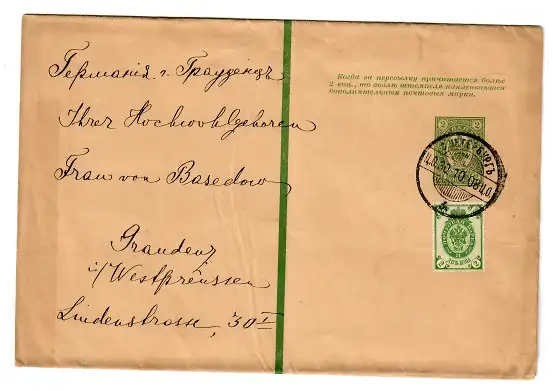 Германія г. Грауденцъ
Ihrer Hochwohlgeboren
Frau von Basedow
Graudenz
i/Westpreussen
Lindenstrasse, 30 I
Когда за пересылку причитается болѣе
2 коп., то возлѣ штемпеля наклеиваются
дополнительныя почтовыя марки.
2 2
С. ПЕТЕРБУРГЪ
30.10.08
2 2